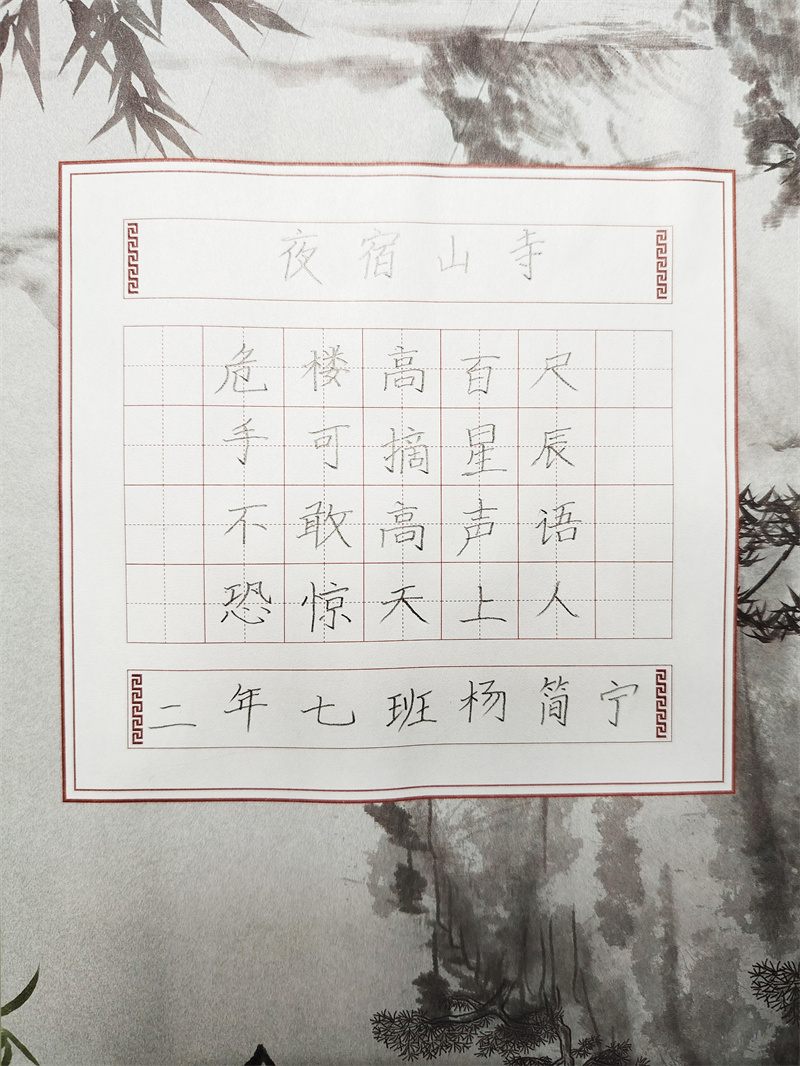 夜宿山寺
危楼高百尺
手可摘星辰
不敢高声语
恐惊天上人
二年七班杨简宁